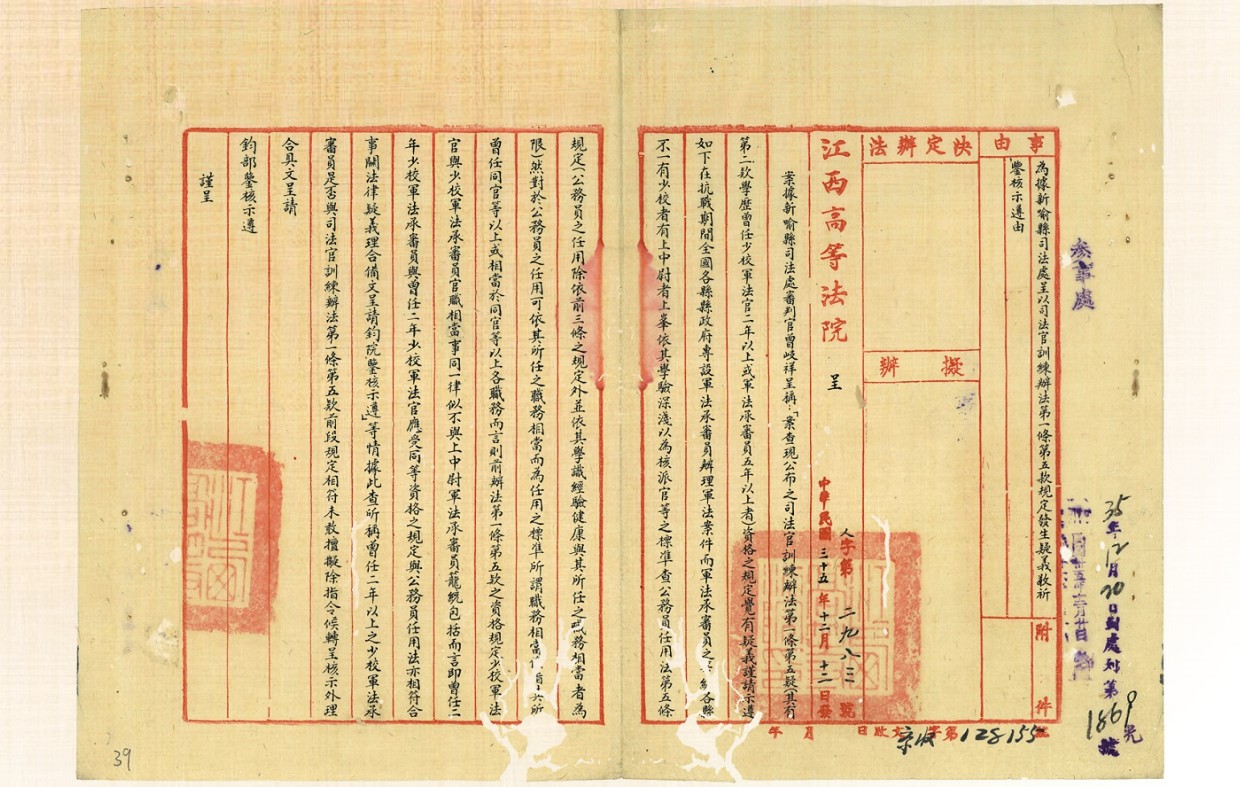 參事處
35年12月20日到處列第1869號
事由
為據新喻縣司法處呈以司法官訓練辦法第一條第五款規定發生疑義敬祈
鑒核示遵由
附件
決定辦法
擬辦
江西高等法院
呈
人字第二九八三號
中華民國三十五年十二月十二日發
年月日
京收128155
案據新喻縣司法處審判官曾岐祥呈稱：「案查現公布之司法官訓練辦法第一條第五疑（其有
第二款學歷曾任少校軍法官二年以上或軍法承審員五年以上者）資格之規定覺有疑義謹請示遵
如下在抗戰期間全國各縣縣政府專設軍法承審員辦理軍法案件而軍法承審員之各縣
不一有少校者有上中尉者上峯依其學驗深淺以為核派官等之標準查公務員任用法第五條
規定（公務員之任用除依前三條之規定外並依其學識經驗健康與其所任之職務相當者為
限）然對於公務員之任用可依其所任之職務相當而為任用之標準所謂職務相當所
曾任同官等以上或相當於同官等以上各職務而言則前辦法第一條第五款之資格規定少校軍法
官與少校軍法承審員官職相當事同一律似不與上中尉軍法承審員籠統包括而言即曾任二
年少校軍法承審員與曾任二年少校軍法官應受同等資格之規定與公務員任用法亦相符合
事關法律疑義理合備文呈請鈞院鑒核示遵」等情據此查所稱曾任二年以上之少校軍法承
審員是否與司法官訓練辦法第一條第五款前段規定相符未敢擅擬除指令候轉呈核示外理
合具文呈請
鈞部鑒核示遵
謹呈
39